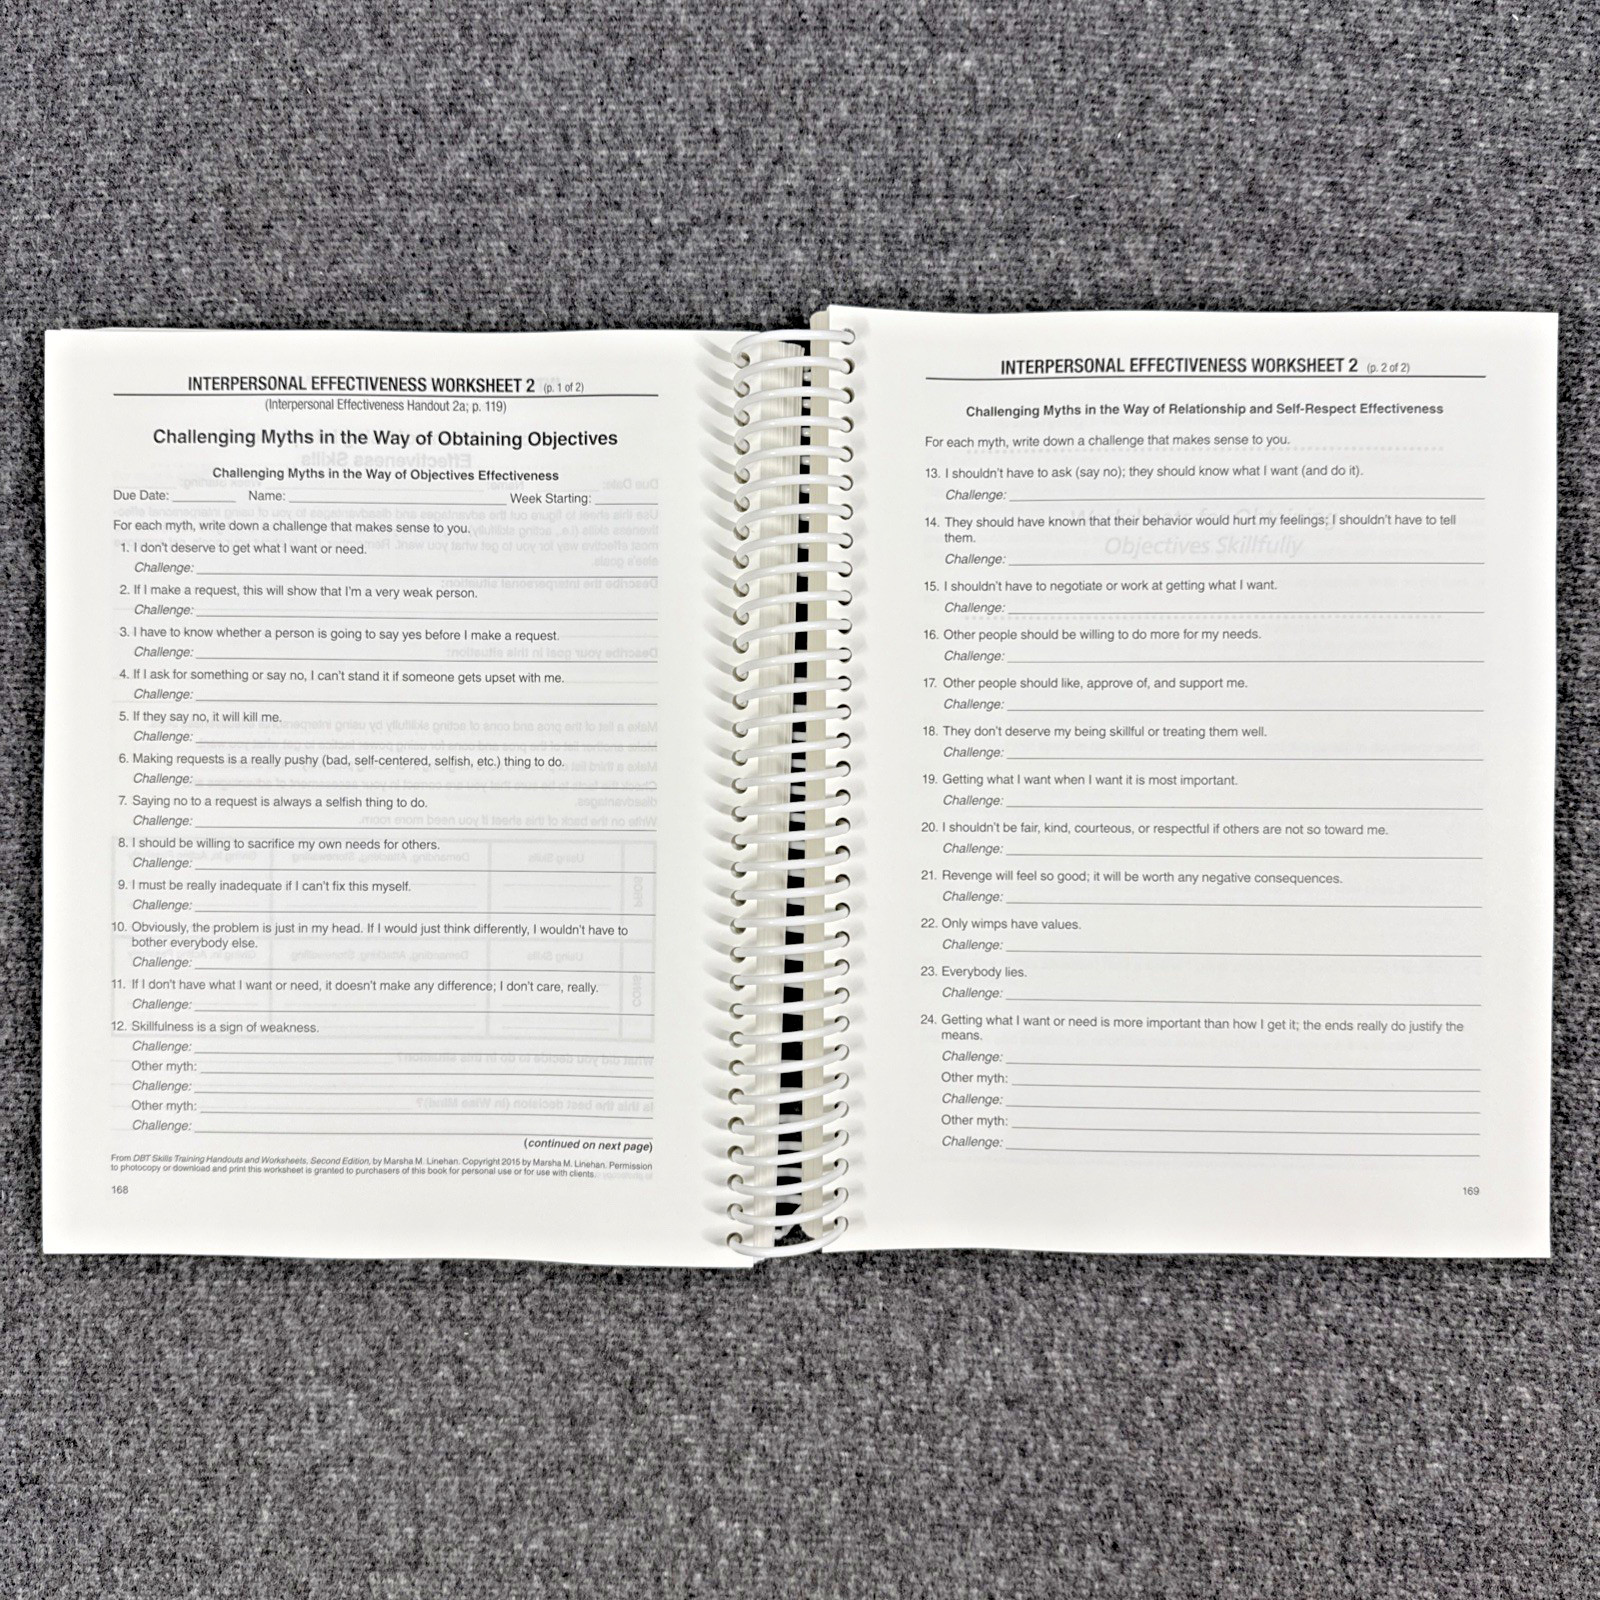 INTERPERSONAL EFFECTIVENESS WORKSHEET 2 (p. 1 of 2)
(Interpersonal Effectiveness Handout 2a; p. 119)
Challenging Myths in the Way of Obtaining Objectives
Challenging Myths in the Way of Objectives Effectiveness
Due Date: Name: Week Starting:
For each myth, write down a challenge that makes sense to you.
1. I don't deserve to get what I want or need.
Challenge:
2. If I make a request, this will show that I'm a very weak person.
Challenge:
3. I have to know whether a person is going to say yes before I make a request.
Challenge:
4. If I ask for something or say no, I can't stand it if someone gets upset with me.
Challenge:
5. If they say no, it will kill me.
Challenge:
6. Making requests is a really pushy (bad, self-centered, selfish, etc.) thing to do.
Challenge:
7. Saying no to a request is always a selfish thing to do.
Challenge:
8. I should be willing to sacrifice my own needs for others.
Challenge:
9. I must be really inadequate if I can't fix this myself.
Challenge:
10. Obviously, the problem is just in my head. If I would just think differently, I wouldn't have to
bother everybody else.
Challenge:
11. If I don't have what I want or need, it doesn't make any difference; I don't care, really.
Challenge:
12. Skillfulness is a sign of weakness.
Challenge:
Other myth:
Challenge:
Other myth:
Challenge:
(continued on next page)
From DBT Skills Training Handouts and Worksheets, Second Edition, by Marsha M. Linehan. Copyright 2015 by Marsha M. Linehan. Permission
to photocopy or download and print this worksheet is granted to purchasers of this book for personal use or for use with clients.
168
INTERPERSONAL EFFECTIVENESS WORKSHEET 2 (p. 2 of 2)
Challenging Myths in the Way of Relationship and Self-Respect Effectiveness
For each myth, write down a challenge that makes sense to you.
13. I shouldn't have to ask (say no); they should know what I want (and do it).
Challenge:
14. They should have known that their behavior would hurt my feelings; I shouldn't have to tell
them.
Challenge:
15. I shouldn't have to negotiate or work at getting what I want.
Challenge:
16. Other people should be willing to do more for my needs.
Challenge:
17. Other people should like, approve of, and support me.
Challenge:
18. They don't deserve my being skillful or treating them well.
Challenge:
19. Getting what I want when I want it is most important.
Challenge:
20. I shouldn't be fair, kind, courteous, or respectful if others are not so toward me.
Challenge:
21. Revenge will feel so good; it will be worth any negative consequences.
Challenge:
22. Only wimps have values.
Challenge:
23. Everybody lies.
Challenge:
24. Getting what I want or need is more important than how I get it; the ends really do justify the
means.
Challenge:
Other myth:
Challenge:
Other myth:
Challenge:
169